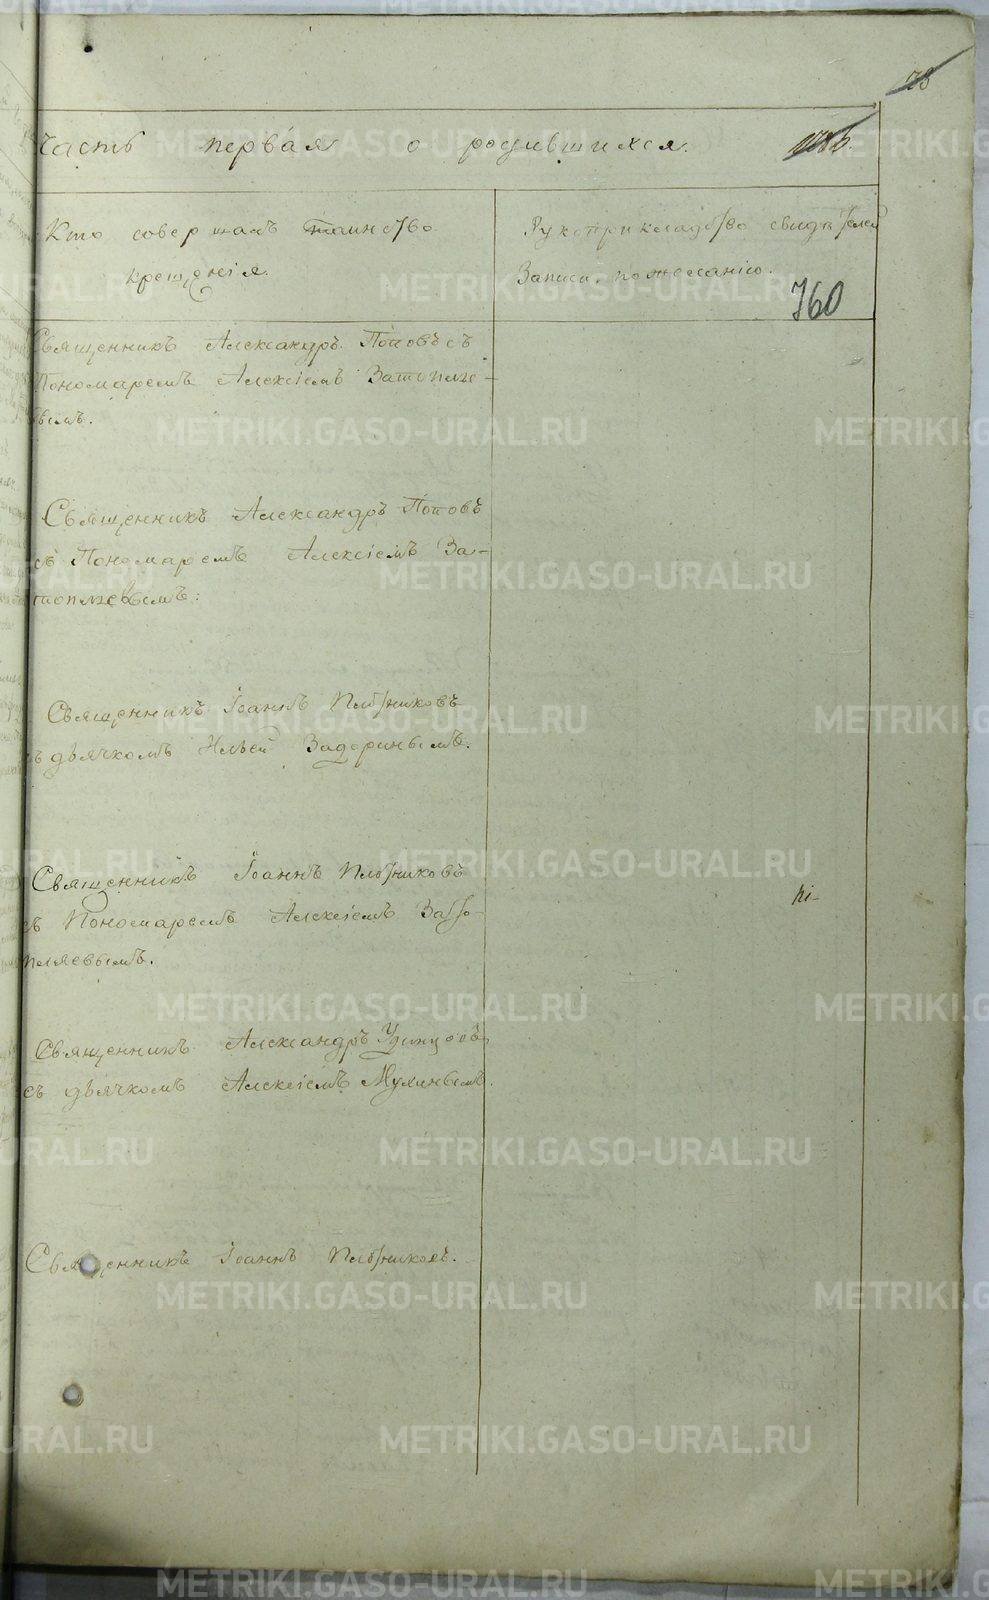 78
Часть первая о родившихся.
Кто совершалъ таинство
крещенія.
Рукоприкладство свидѣтелей
записи по желанію.
760
Священникъ Александръ Поповъ съ
Пономаремъ Алексіемъ Затопляе-
вымъ.
Священникъ Александръ Поповъ
съ Пономаремъ Алексіемъ За-
топляевымъ.
Священникъ Іоаннъ Плотниковъ
съ дьячкомъ Ильей Задоринымъ.
Священникъ Іоаннъ Плотниковъ
съ Пономаремъ Алексіемъ Зато-
пляевымъ.
Священникъ Александръ Удинцовъ
съ дьячкомъ Алексіемъ Мухинымъ.
Священникъ Іоаннъ Плотниковъ.
METRIKI.GASO-URAL.RU